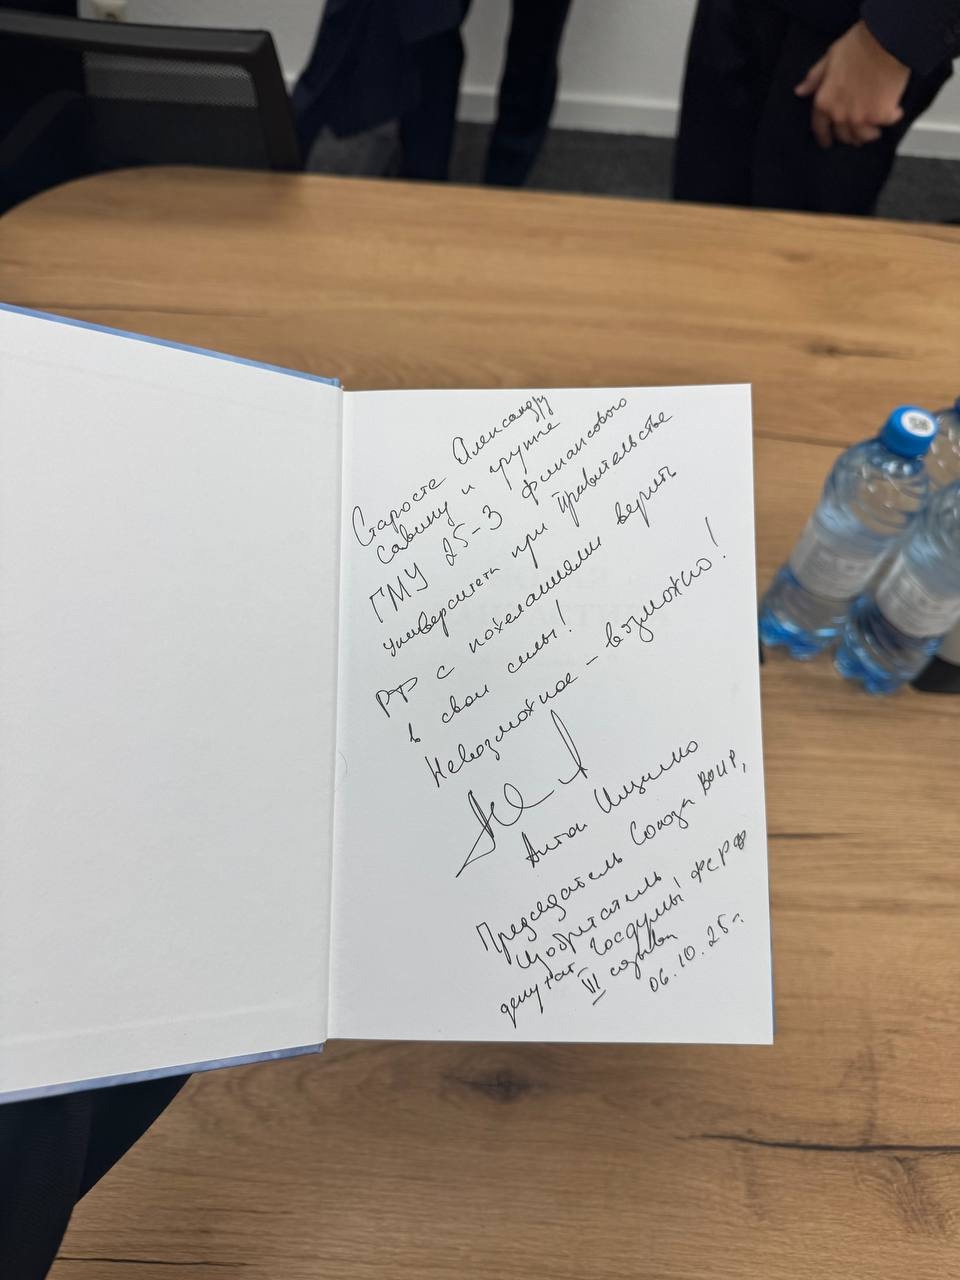 Старосте Александру
Савину и группе
ГМУ 25-3 Финансового
университета при Правительстве
РФ с пожеланиями верить
в свои силы!
Невозможное – возможно!
Антон Ищенко
Председатель Союза ВОИР,
изобретатель
депутат Госдумы ФС РФ
VI созыва
06.10.25 г.